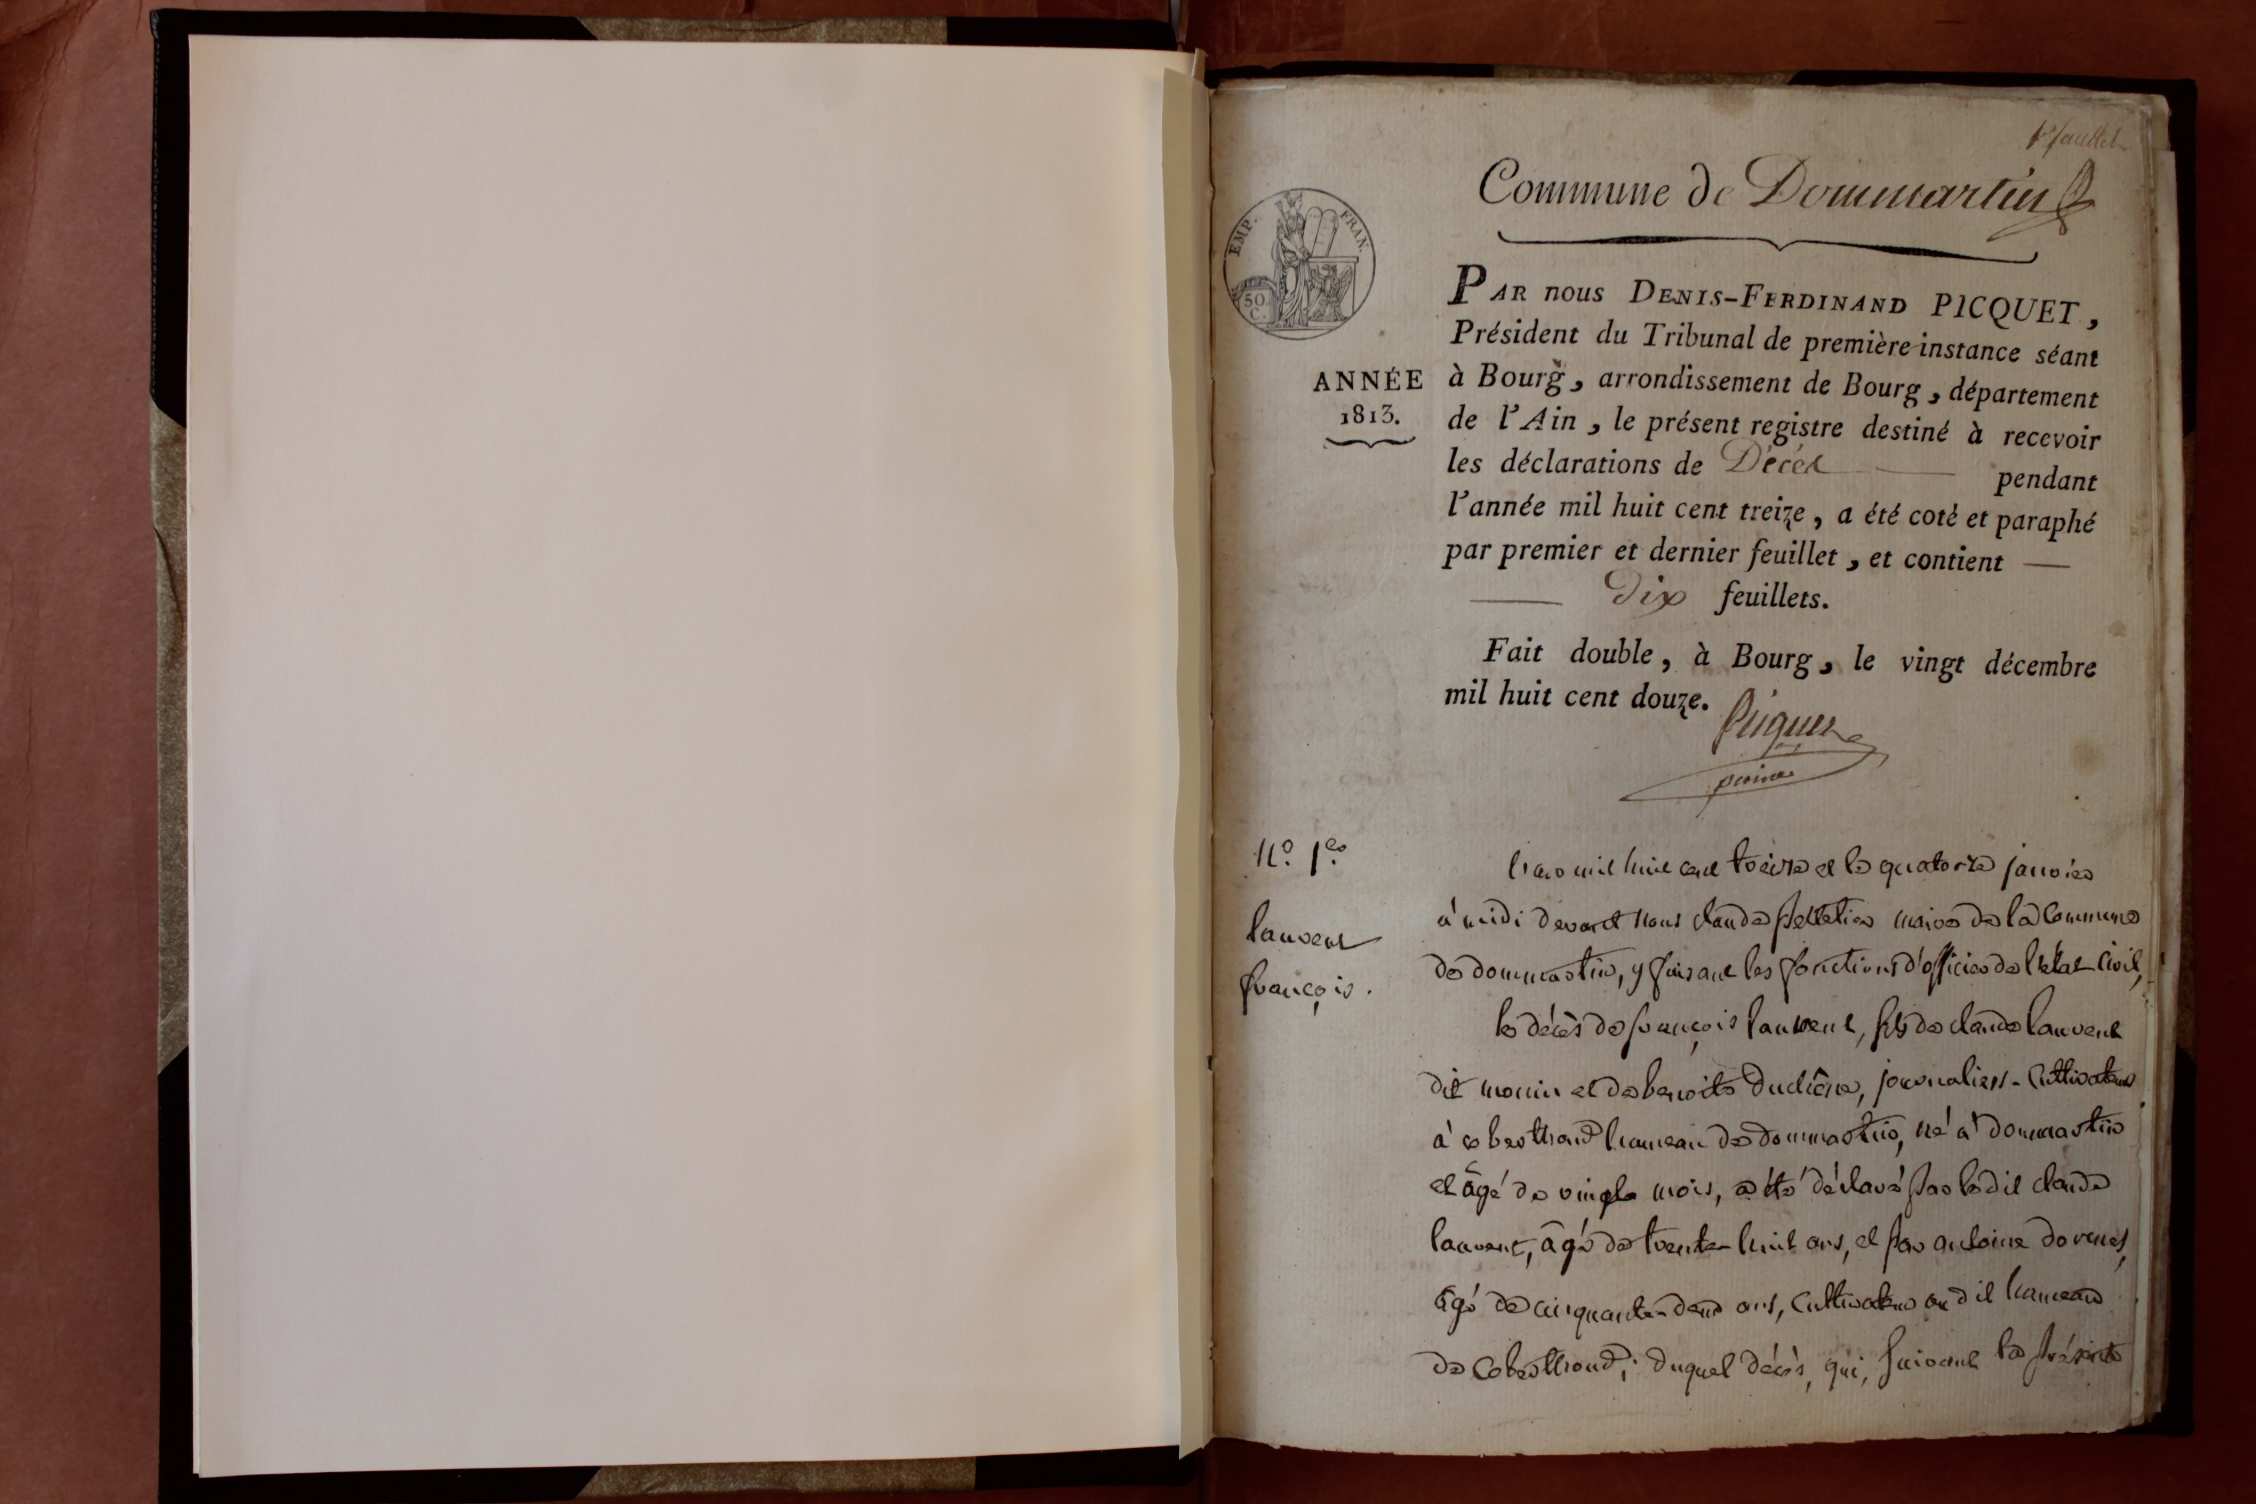 1er feuillet
Commune de Dommartin
EMP. FRAN.
50 C.
ANNÉE
1813.
PAR nous DENIS-FERDINAND PICQUET,
Président du Tribunal de première instance séant
à Bourg, arrondissement de Bourg, département
de l'Ain, le présent registre destiné à recevoir
les déclarations de Décès — pendant
l'année mil huit cent treize, a été coté et paraphé
par premier et dernier feuillet, et contient —
— Dix feuillets.
Fait double, à Bourg, le vingt décembre
mil huit cent douze.
Picquet
N.º 1.er
lauvent
françois.
l'an mil huit cent treize et le quatorze janvier
à midi devant nous claude pelletier maire de la Commune
de dommartin, y faisant les fonctions d'officier de l'état Civil,
le décès de françois lauvent, fils de claude lauvent
dit monin et de benoite Duchêne, journaliers-Cultivateurs
à hameau de dommartin, né à dommartin
et âgé de vingt mois, a été déclaré par le dit claude
lauvent, âgé de trente-huit ans, et par antoine
âgé de cinquante-deux ans, Cultivateur au dit hameau
de duquel décès, qui, suivant la présente